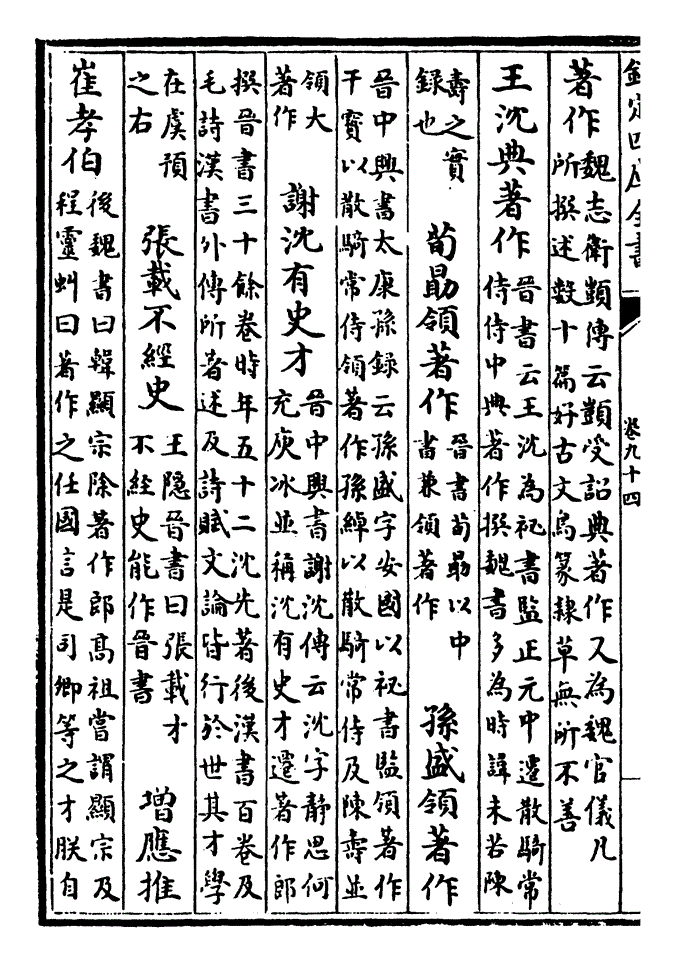 欽定四庫全書
卷九十四
著作
魏志衛顗傳云顗受詔典著作又為魏官儀凡
所撰述數十篇好古文鳥篆隸草無所不善
王沈典著作
晉書云王沈為祕書監正元中遷散騎常
侍侍中典著作撰魏書多為時諱未若陳
壽之實
録也
荀勗領著作
晉書荀勗以中
書兼領著作
孫盛領著作
晉中興書太康孫録云孫盛字安國以祕書監領著作
干寶以散騎常侍領著作孫綽以散騎常侍及陳壽並
領大
著作
謝沈有史才
晉中興書謝沈傳云沈字靜思何
充庾冰並稱沈有史才遷著作郎
撰晉書三十餘卷時年五十二沈先著後漢書百卷及
毛詩漢書外傳所著述及詩賦文論皆行於世其才學
在虞預
之右
張載不經史
王隱晉書曰張載才
不經史能作晉書
增應推
崔孝伯
後魏書曰韓顯宗除著作郎高祖嘗謂顯宗及
程靈虯曰著作之任國言是司卿等之才朕自